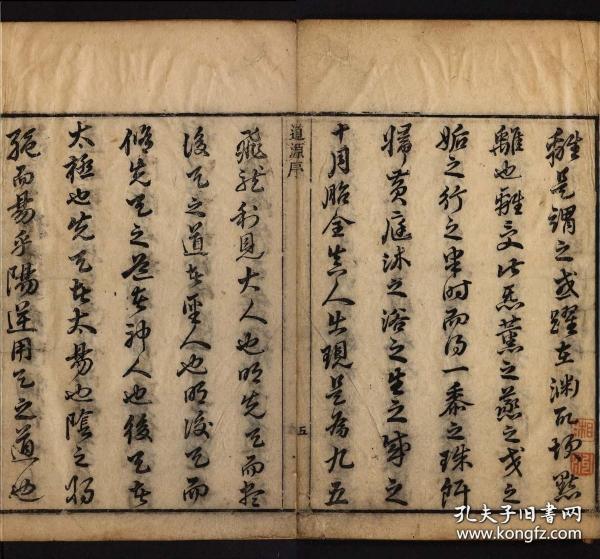 離是謂之或躍在淵坎塡
離也離交
姤之行之半時而得一黍之珠餌
歸黄庭沐之浴之生之成之
十月胎全真人出現是為九五
道源序
五
飛龍利見大人也明先天而
後天之道者聖人也明後天而
修先天之道者神人也後天者
太極也先天者太易也陰之將
純而易乎陽逆用天之道也
孔夫子旧书网
www.kongfz.com